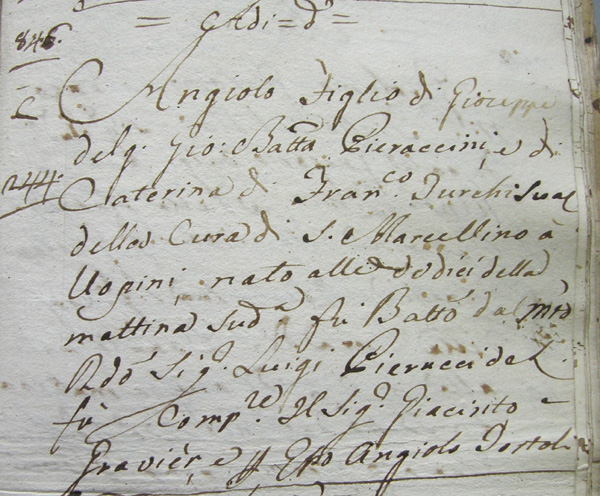 846.
= Adi = dº =
C Angiolo Figlio di Giuseppe
del q. Gio: Batta Pieraccini, e di
244. Caterina di Franco Turchi sua
della Cura di S. Marcellino à
Uopini, nato alle dodici della
mattina sudª fù Batto dal
Rdo Sigr. Luigi Pierucci
fù Compre Il Sigr. Giacinto
Gravier, e Angiolo